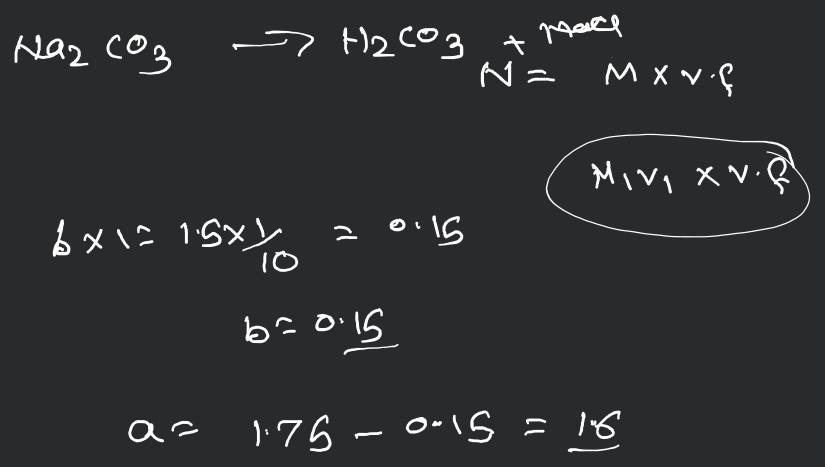 Na2 CO3 → H2CO3 + NaCl
N = M × v.f
M1V1 × v.f
b × 1 = 1.5 × 1/10 = 0.15
b = 0.15
a = 1.75 - 0.15 = 1.6